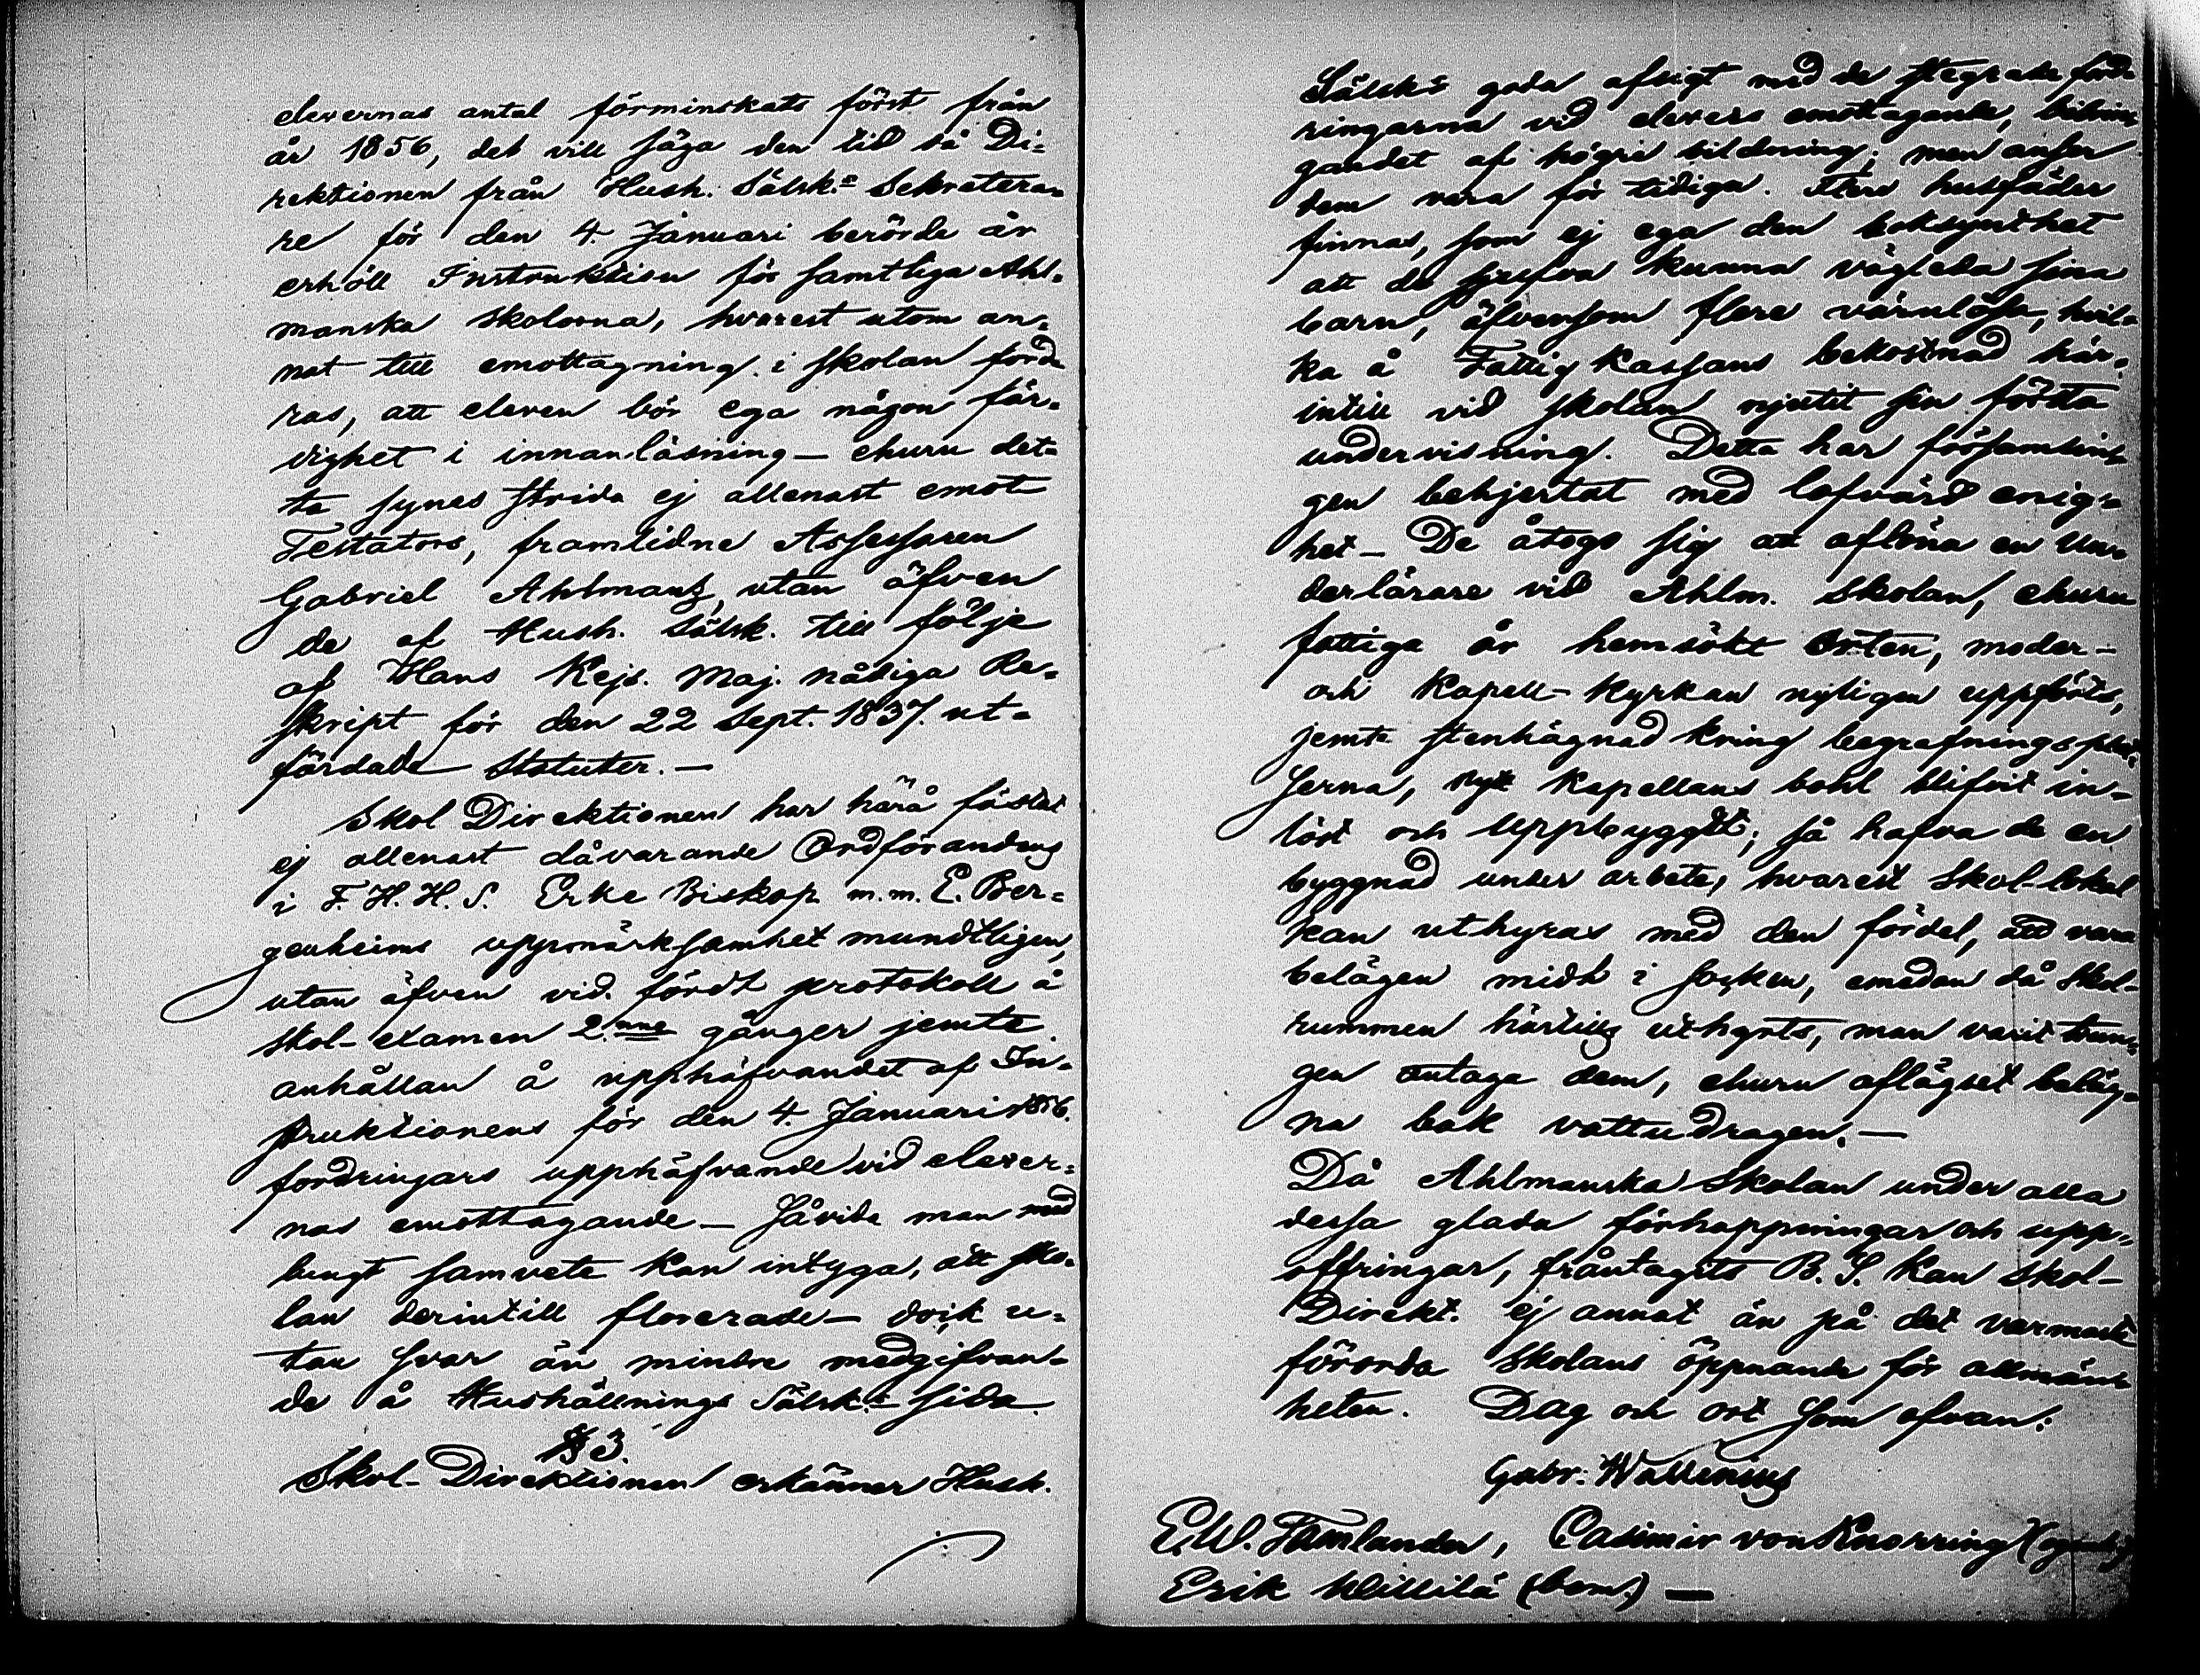 elevernas antal förminskats först från
år 1856, det vill säga den tid så Di=
rektionen från Hush. Sälsk:s Sekretera=
re för den 4. Januari berörde år
erhöll Instruktion för samtliga Ahl=
manska skolorna, hvarest utom an=
nat till emottagning i skolan ford
ras, att eleven bör ega någon fär=
dighet i innanläsning – ehuru det=
ta synes strida ej allenast emot
Testators, framlidne Assessoren
Gabriel Ahlmans, utan äfven
de af Hush. Sälsk. till följe
af Hans Kejs. Maj. nådiga Re=
skript för den 22 Sept. 1837. ut=
färdade Statuter. –
Skol Direktionen har härå fästat
ej allenast dåvarande Ordförandens
i F. H. H. S. Erke Biskop m.m. E. Ber=
genheims uppmärksamhet mundtligen,
utan äfven vid fördt protokoll å
skol-examen 2.nne gånger jemte
anhållan å upphäfvandet af In=
struktionens för den 4. Januari 1856.
fordringars upphäfvande vid elever=
nas emottagande – såvida man med
lungt samvete kan intyga, att sko=
lan derintill florerade – dock u=
tan svar än mindre medgifvan=
de å Hushållnings Sälsk:s sida.
§ 3.
Skol-Direktionen erkänner Hush.
Sälsk:s goda afsigt med de stegrade ford
ringarna vid elevers emottagande,
gandet af högre bildning; men anser
dem vara för tidiga. Flere husfäder
finnas, som ej ega den boksynthet
att de sjelfva kunna vägleda sina
barn, äfvensom flere värnlösa, hvil=
ka å Fattig Kassans bekostnad här=
intill vid skolan njutit sin första
undervisning. Detta har församlin=
gen behjertat med lofvärd enig=
het – De åtogo sig att aflöna en un=
derlärare vid Ahlm. skolan, ehuru
fattiga år hemsökt orten, moder-
och Kapell-Kyrkan nyligen uppförts,
jemte stenhägnad kring begrafningsplat=
serna, nytt Kapellans bohl blifvit in=
löst och uppbyggdt; så hafva de en
byggnad under arbete, hvarest Skol-lokal
kan uthyras med den fördel, att vara
belägen midt i socken, emedan då skol-
rummen härtills uthyrts, man varit tvun=
gen antaga dem, ehuru aflägset beläg=
na bak vattudragen. –
Då Ahlmanska Skolan under alla
dessa glada förhoppningar och upp=
offringar, fråntagits B. S. kan Skol-
Direkt. ej annat än på det varmaste
förorda Skolans öppnande för allmän=
heten. Dag och ort som ofvan:
Gabr. Wallenius
E.W. Famlander, Casimir von Knorring
Erik Willilä (bom.) –